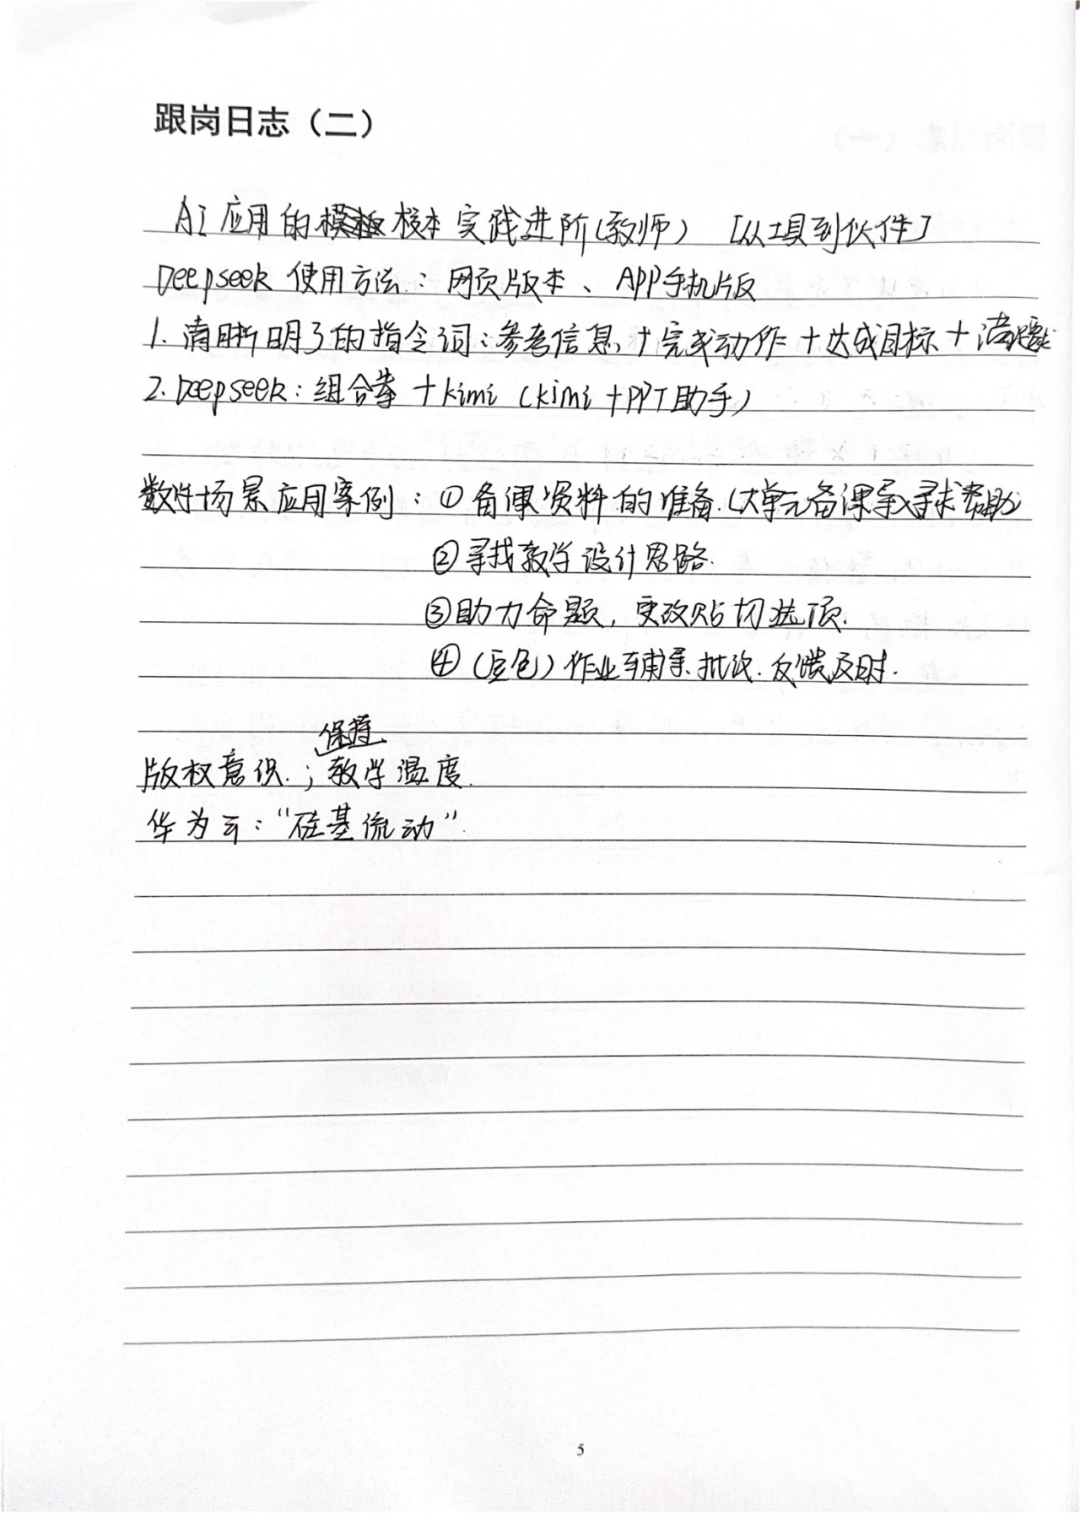 跟岗日志（二）
AI应用的校本实践进阶（教师） [从工具到伙伴]
Deepseek 使用方法：网页版本、APP手机版
1. 清晰明了的指令词：参考信息＋完成动作＋达成目标＋满足
2. Deepseek：组合拳＋kimi（kimi＋PPT助手）
教学场景应用案例：①备课资料的准备.（大单元备课 寻求帮助
②寻找教学设计思路.
③助力命题，更改贴切选项.
④（豆包）作业辅导.批改.反馈及时.
保持
版权意识.；教学温度.
华为云：“硅基流动”.
5